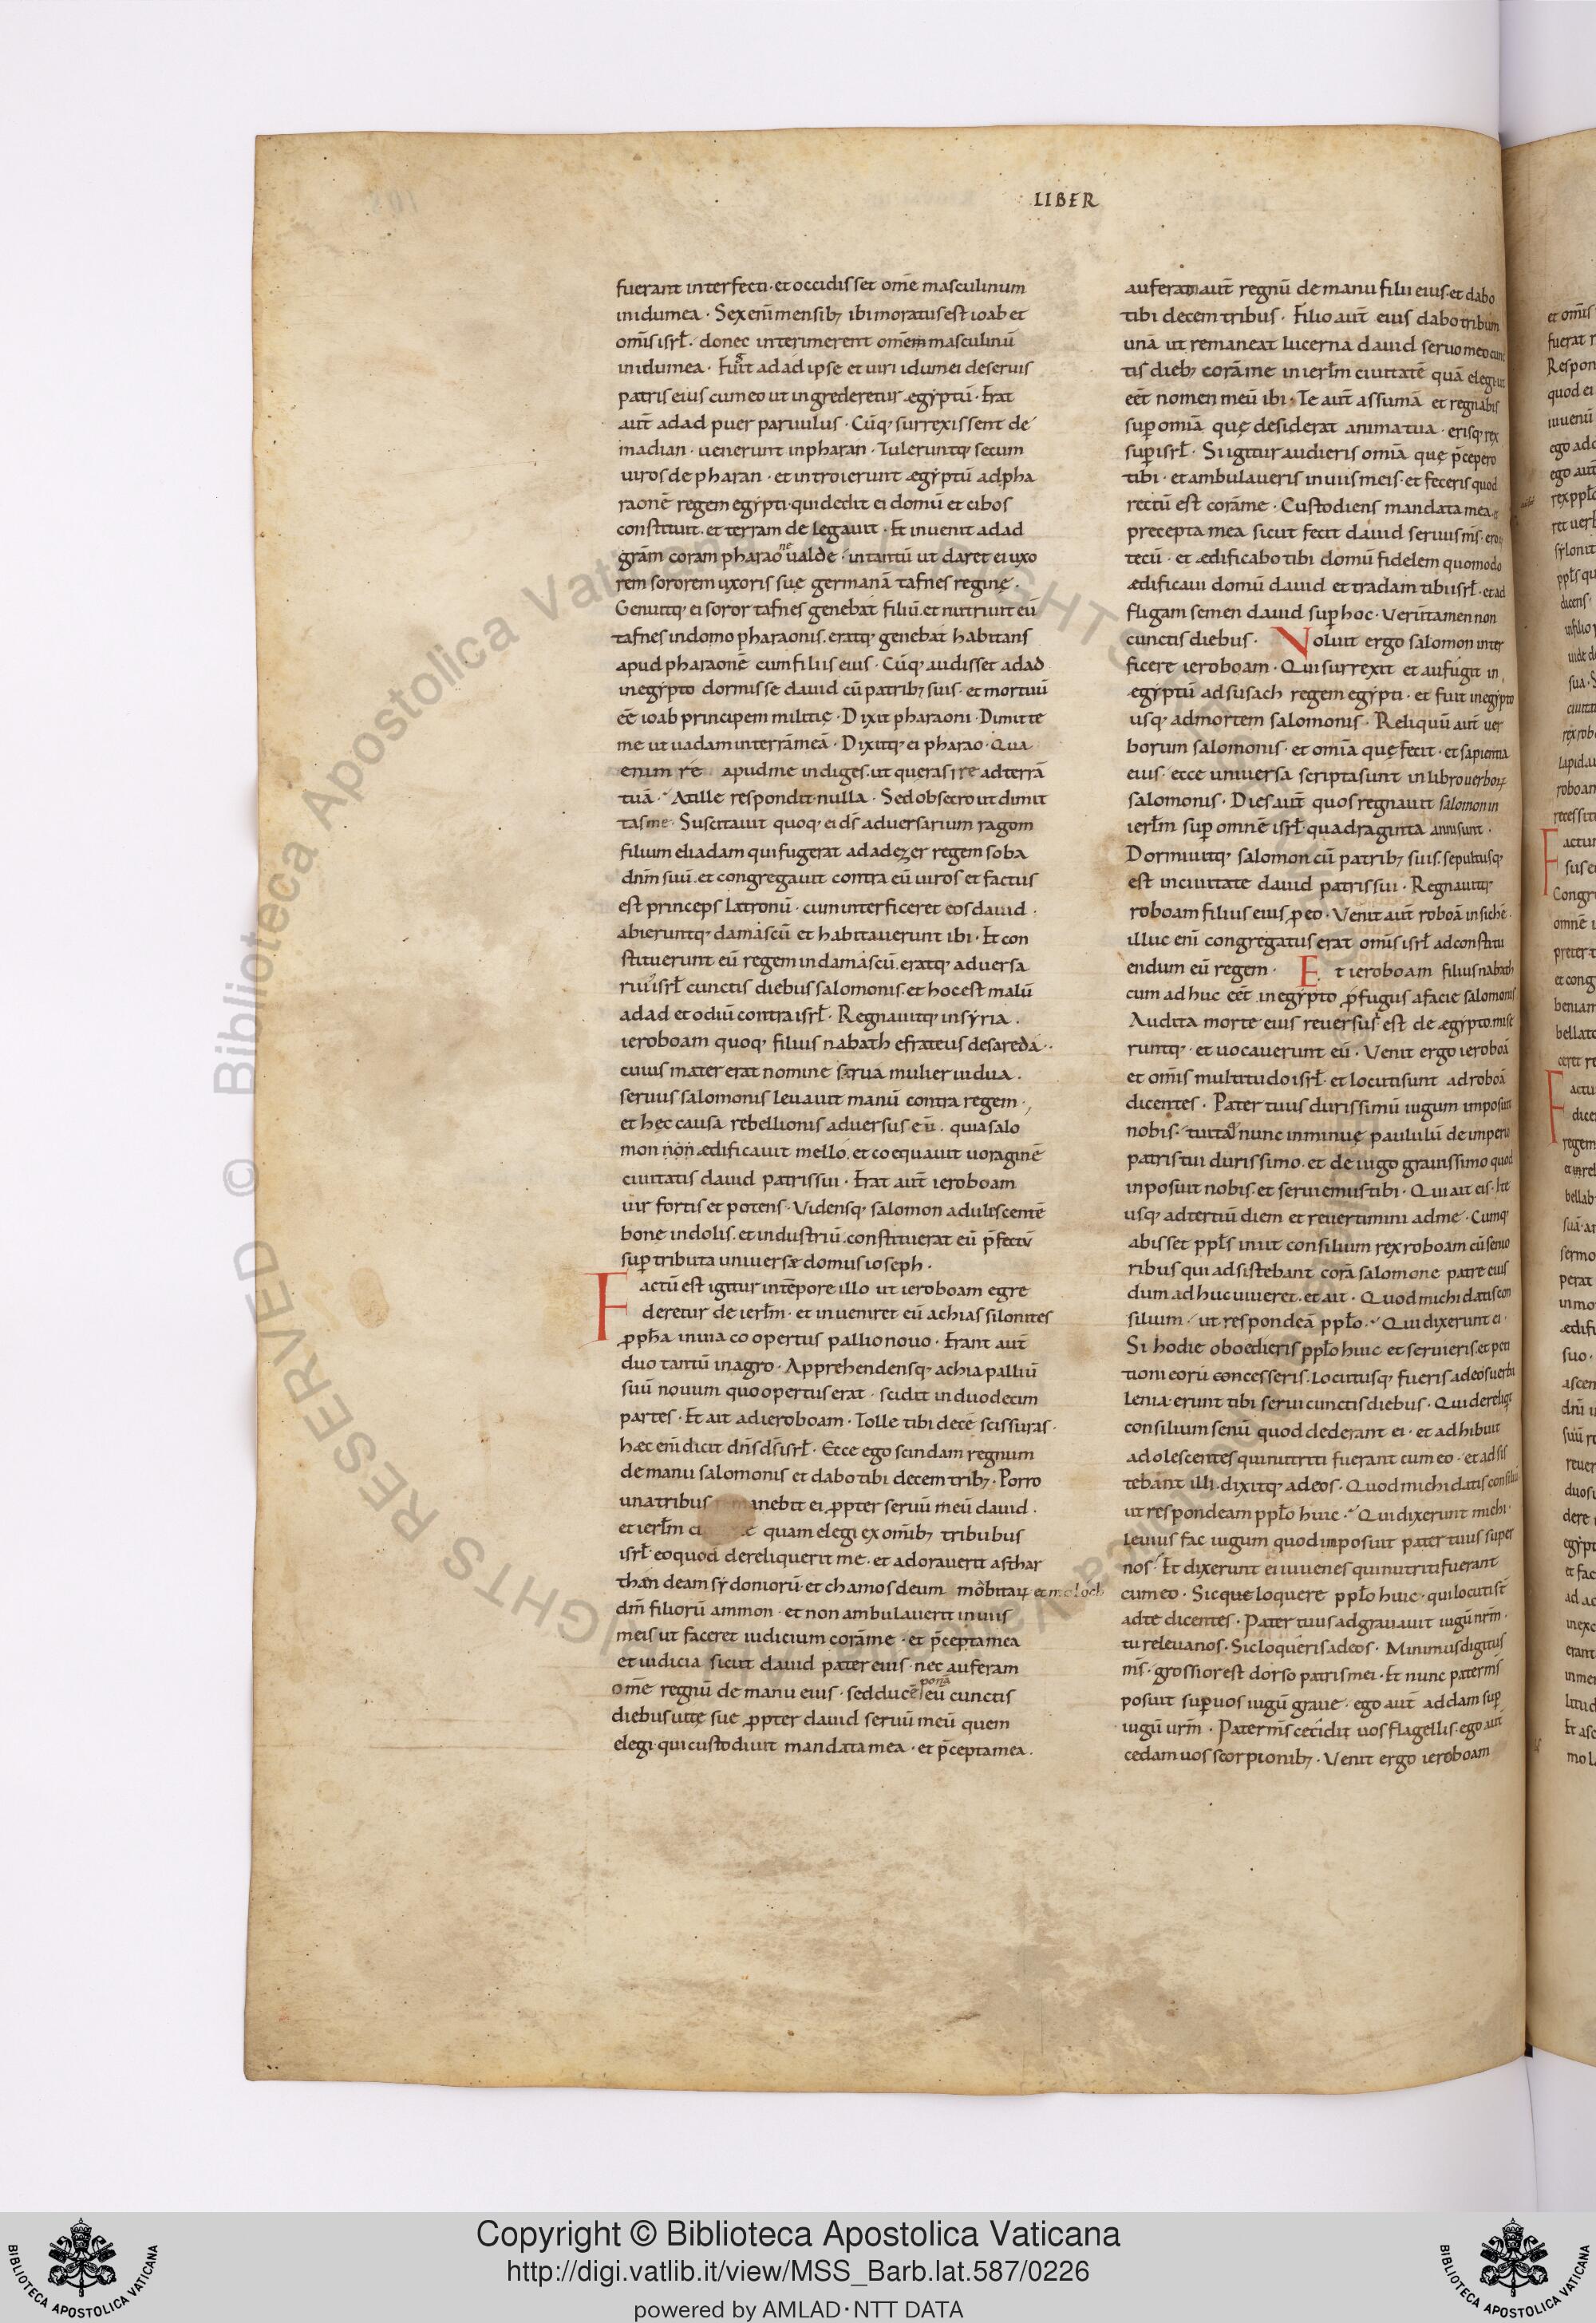 LIBER
fuerant interfecti · et occidisset om̄e masculinum
inidumea · Sex enī mensib; ibi moratus est ioab et
om̄is isrł · donec interimerent om̄em masculinū
inidumea · adad ipse et uiri idumei deseruis
patris eius cum eo ut ingrederetur ægyptū · Erat
aūt adad puer paruulus · Cūq; surrexissent de
madian · uenerunt inpharan · Tuleruntq; secum
uiros de pharan · et introierunt ægyptū adpha
raonē regem egypti · qui dedit ei domū et cibos
constituit · et terram delegauit · Et inuenit adad
grām coram pharaone ualde · intantū ut daret ei uxo
rem sororem uxoris suę germanā tafnes reginę ·
Genuitq; ei soror tafnes genebat filiū · et nutriuit eū
tafnes indomo pharaonis · eratq; genebat habitans
apud pharaonē cum filiis eius · Cūq; audisset adad
inegypto dormisse dauid cū patrib; suis · et mortuū
eē ioab principem militię · Dixit pharaoni · Dimitte
me ut uadam interrā meā · Dixitq; ei pharao · Qua
enim re apud me indiges · ut queras ire adterrā
tuā · At ille respondit · nulla · Sed obsecro ut dimit
tas me · Suscitauit quoq; ei dś aduersarium ragom
filium eliadam qui fugerat adadezer regem soba
dnm̄ suū · et congregauit contra eū uiros et factus
est princeps latronū · cum interficeret eos dauid ·
abieruntq; damascū et habitauerunt ibi · Et con
stituerunt eū regem indamascū · eratq; aduersa
rius isrł cunctis diebus salomonis · et hoc est malū
adad et odiū contra isrł · Regnauitq; insyria ·
ieroboam quoq; filius nabath efrateus desareda ·
cuius mater erat nomine sarua mulier uidua ·
seruus salomonis leuauit manū contra regem ·
et hęc causa rebellionis aduersus eū · quia salo
mon non ædificauit mello · et coequauit uoraginē
ciuitatis dauid patris sui · Erat aūt ieroboam
uir fortis et potens · Vidensq; salomon adulescentē
bone indolis · et industriū · constituerat eū p̄fectū
sup̄ tributa uniuersæ domus ioseph ·
Factū est igitur intēpore illo ut ieroboam egre
deretur de ierłm · et inueniret eū achias silonites
ppħa inuia coopertus pallio nouo · Erant aūt
duo tantū inagro · Apprehendensq; achia palliū
suū nouum quo opertus erat · scidit induodecim
partes · Et ait adieroboam · Tolle tibi decē scissuras ·
hæc enī dicit dn̄s dś isrł · Ecce ego scindam regnum
de manu salomonis et dabo tibi decem trib; · Porro
una tribus manebit ei ppter seruū meū dauid ·
et ierłm quam elegi ex omīb; tribubus
isrł · eoquod dereliquerit me · et adorauerit asthar
then deam sydoniorū · et chamos deum mobitarum et moloch
dm̄ filiorū ammon · et non ambulauerit inuiis
meis ut faceret iudicium corā me · et p̄cepta mea
et iudicia sicut dauid pater eius · nec auferam
om̄e regnū de manu eius · sed ducē ponā eū cunctis
diebus uitę sue ppter dauid seruū meū quem
elegi · qui custodiuit mandata mea · et p̄cepta mea ·
auferam aūt regnū de manu filii eius · et dabo
tibi decem tribus · Filio aūt eius dabo tribum
unā ut remaneat lucerna dauid seruo meo cunc
tis dieb; corā me in ierłm ciuitatē quā elegi ut
eēt nomen meū ibi · Te aūt assumā et regnabis
sup̄ omīa quę desiderat anima tua · erisq; rex
sup̄ isrł · Si igitur audieris omīa quę p̄cepero
tibi · et ambulaueris inuiis meis · et feceris quod
rectū est corā me · Custodiens mandata mea
precepta mea sicut fecit dauid seruus ms̄ · ero
tecū · et ædificabo tibi domū fidelem quomodo
ædificaui domū dauid et tradam tibi isrł · et ad
fligam semen dauid sup̄ hoc · Verūtamen non
cunctis diebus · Voluit ergo salomon inter
ficere ieroboam · Qui surrexit et aufugit in
egyptū ad susach regem egypti · et fuit inegypto
usq; admortem salomonis · Reliquū aūt uer
borum salomonis · et omīa quę fecit · et sapientia
eius · ecce uniuersa scripta sunt in libro uerborum
salomonis · Dies aūt quos regnauit salomon in
ierłm sup̄ omnē isrł · quadraginta anni sunt ·
Dormiuitq; salomon cū patrib; suis · sepultusq;
est inciuitate dauid patris sui · Regnauitq;
roboam filius eius p̱ eo · Venit aūt roboā insichē ·
illuc enī congregatus erat om̄is isrł adconstitu
endum eū regem · Et ieroboam filius nabath
cum adhuc eēt inegypto p̱fugus afacie salomonis
Audita morte eius reuersus est de ægypto · mise
runtq; · et uocauerunt eū · Venit ergo ieroboā
et om̄is multitudo isrł · et locuti sunt adroboā
dicentes · Pater tuus durissimū iugum imposuit
nobis · tu ita nunc inminuę paululū de imperio
patris tui durissimo · et de iugo grauissimo quod
inposuit nobis · et seruiemus tibi · Qui ait eis · Ite
usq; adtertiū diem et reuertimini adme · Cumq;
abisset ppłs iniit consilium rex roboam cū senio
ribus qui adsistebant corā salomone patre eius
dum adhuc uiueret · et ait · Quod michi datis con
silium · ut respondeā ppło · Qui dixerunt ei ·
Si hodie oboedieris ppło huic et seruieris · et peti
tioni eorū concesseris · Locutusq; fueris adeos uerba
lenia · erunt tibi serui cunctis diebus · Qui dereliqt
consilium senū quod dederant ei · et adhibuit
adolescentes qui nutriti fuerant cum eo · et adsis
tebant illi · dixitq; adeos · Quod michi datis consiliū
ut respondeam ppło huic · Qui dixerunt michi ·
Leuius fac iugum quod imposuit pater tuus super
nos · Et dixerunt ei iuuenes qui nutriti fuerant
cum eo · Sic que loquere ppło huic · qui locuti st̄
adte dicentes · Pater tuus adgrauauit iugū nrm̄ ·
tu releua nos · Sic loqueris adeos · Minimus digitus
ms̄ · grossior est dorso patris mei · Et nunc pater ms̄
posuit sup̄ uos iugū graue · ego aūt addam sup̄
iugū urm̄ · Pater ms̄ cecidit uos flagellis · ego aūt
cedam uos scorpionib; · Venit ergo ieroboam
Copyright © Biblioteca Apostolica Vaticana
http://digi.vatlib.it/view/MSS_Barb.lat.587/0226
powered by AMLAD·NTT DATA